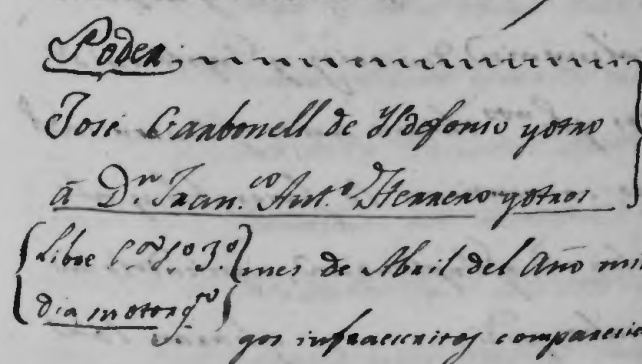 Poder
José Carbonell de Ildefonso y otro
á Dn. Fran.co Ant.o Herrero y otros
Libre
mes de Abril del Año
dia
gos infraescritos